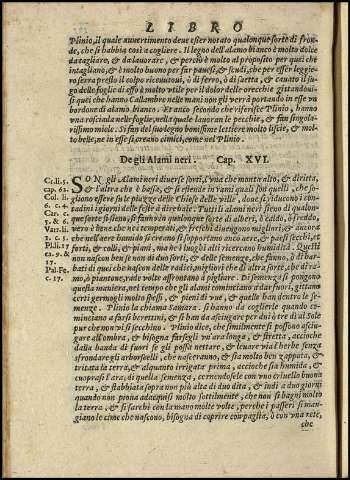 LIBRO
Plinio, il quale auuertimento deue esser notato qualonque sorte di fron-
de, che si habbia così a cogliere. Il legno dell'alamo bianco è molto dolce
da tagliare, & da lauorare, & perciò è molto al proposito per quei che
intagliano, & è molto buono per far pauesi, & scudi, che per esser leggie-
ro serra presto il colpo riceuuto, ò di ferro, ò di saetta, & cauato il su-
go delle foglie di esso è molto vtile per il dolor delle orecchie gittandoui-
si quei che hanno Calambre nelle mani con gli però portando in esse vn
bordone di alamo bianco. secondo che riferisce Plinio, hanno
vna rosciada nelle foglie, nella quale lauoran le pecchie, & fan singola-
rissimo miele. Si fan del suo legno bonissime lettiere molto liscie, & mol-
to belle, ne in esse si creano cimici, come nel Pino.
De gli Alami neri. Cap. XVI.
Cr. li. 5.
cap. 62.
Col. li.
6. c. 4.
Car. c.
5. & 6.
Varr. li.
1. c. 5.
Pl. li. 17
ca. 9. &
17.
Pal. Fe.
c. 17.
SON gli Alami neri diuerse sorti, l'vna che monta alto, & diritta,
& l'altra che è bassa, & si estende in rami quali son quelli, che so-
gliono essere su le piagge delle Chiese delle ville, doue si riducono i con-
tadini i giorni delle feste à tridare. Tutti li alami neri sieno di qualon-
que sorte si sieno, si fanno in qualonque sorte di alberi, ò caldo, ò freddo,
vero è bene che ne i temperati, & freschi diuengono migliori, & ancora
che nell'aere humido si creano si sopportano anco aere, & paesi secchi, &
forti, & colli, & piani, ma ne i luoghi alti ricercano humidità. Questi
non nascon ben se non di duo sorti, & delle semenze, che fanno, ò di bar-
bati di quei che nascon delle radici, migliori che di altra sorte, ò di ra-
mo, ò piantone, pur volte affrontano à pigliare. Di semenza si pongono
questa maniera, nel tempo che gli alami cominciano a dar fuori, gittano
certi germogli molto spessi, & pieni di vue, & quelle han dentro le se-
menze. Plinio la chiama Samara. si hanno da coglierle quando co-
minciano a farsi berettini, & si han da asciugare per duo, ò tre dì al Sole
pur che non vi si secchino. Plinio dice, che similmente si possono asciu-
gare all'ombra, & bisogna fargli vn'ara longa, & stretta, acciocche
dalla banda di fuori se gli possa nettare, & leuare via l'herbe senza
afrondare gli arborselli, che nasceranno, & sia molto ben zappata, &
tritata la terra, & alquanto irrigata prima, acciocche sia humida, &
cuoprasi l'ara, di quella semenza, cernendosele con vno criuello buona
terra, & habbiasi sopra non più alta di duo dita, & indi a duo giorni
quando non pioua adacquisi molto sottilmente, che non si bagni molto
la terra, & si sarchi con la mano molte volte, perche i passeri si man-
giano le cime che nascono, bisogna di coprire con paglia, ò con vna rete,
che